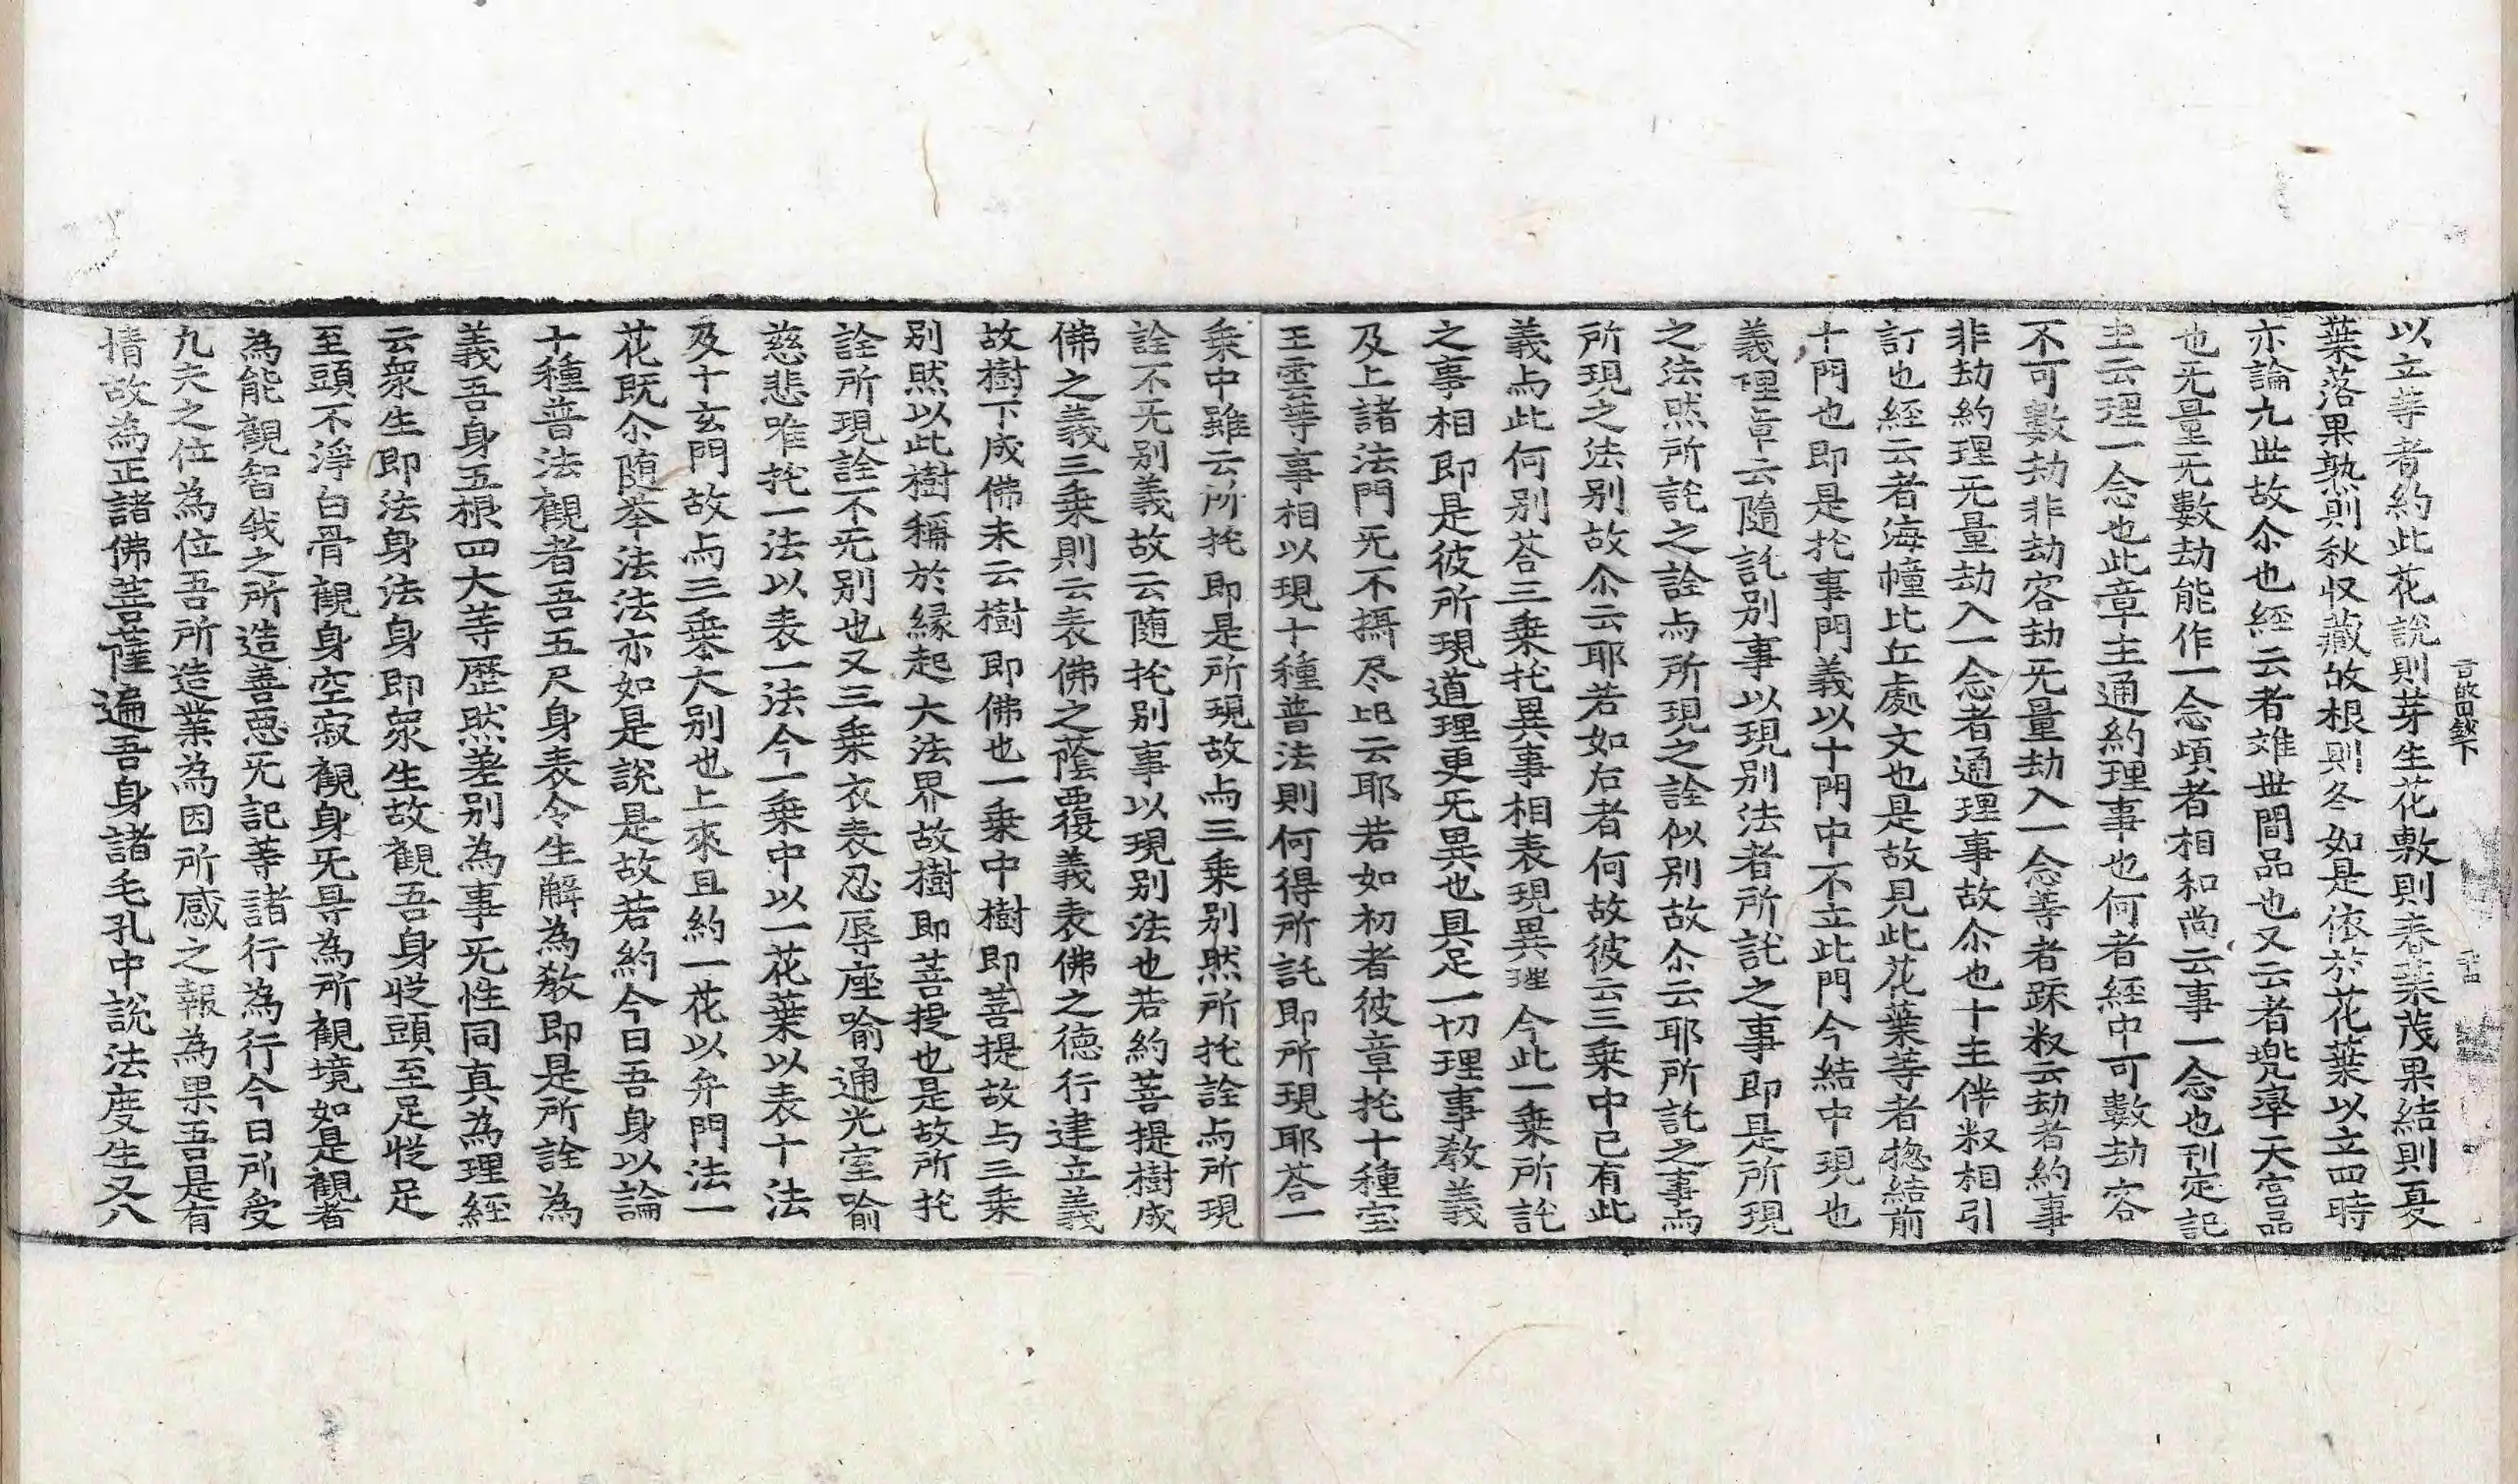 旨歸圓鈔下
以立等者約此花說則芽生花敷則春葉茂果結則夏
葉落果熟則秋収蔵故根則冬如是依於花葉以立四時
亦論九世故尒也經云者䧺世間品也又云者兠率天宮品
也无量无數劫能作一念頃者相和尚云事一念也刊定記
主云理一念也此章主通約理事也何者經中可數劫容
不可數劫非劫容劫无量劫入一念等者踈叙云劫者約事
非劫約理无量劫入一念者通理事故尒也十主伴叙相引
訂也經云者海幢比丘處文也是故見此花葉等者揔結前
十門也即是托事門義以十門中不立此門今結中現也
義理章云隨託別事以現別法者所託之事即是所現
之法然所託之詮与所現之詮似別故尒云耶所託之事与
所現之法別故尒云耶若如后者何故彼云三乗中已有此
義与此何別荅三乗托異事相表現異理今此一乗所託
之事相即是彼所現道理更无異也具足一切理事教義
及上諸法門无不攝尽玭云耶若如初者彼章托十種宝
王雲等事相以現十種普法則何得所託即所現耶荅一
乗中雖云所托即是所現故与三乗別然所托詮与所現
詮不无別義故云随托別事以現別法也若約菩提樹成
佛之義三乗則云表佛之蔭覆義表佛之徳行建立義
故樹下成佛未云樹即佛也一乗中樹即菩提故与三乗
別然以此樹稱於縁起大法界故樹即菩提也是故所托
詮所現詮不无別也又三乗衣表忍辱座喻通光室喻
慈悲唯托一法以表一法今一乗中以一花葉以表十法
及十玄門故与三乗大別也上來且約一花以弁門法一
花既尒随举法法亦如是說是故若約今日吾身以論
十種普法觀者吾五尺身表令生解為教即是所詮為
義吾身五根四大等歷然差別為事无性同真為理經
云衆生即法身法身即衆生故觀吾身從頭至足從足
至頭不淨白骨觀身空寂觀身无㝵為所觀境如是觀者
為能觀智我之所造善惡无記等諸行為行今日所受
九夫之位為位吾所造業為因所感之報為果吾是有
情故為正諸佛菩薩遍吾身諸毛孔中說法度生又八